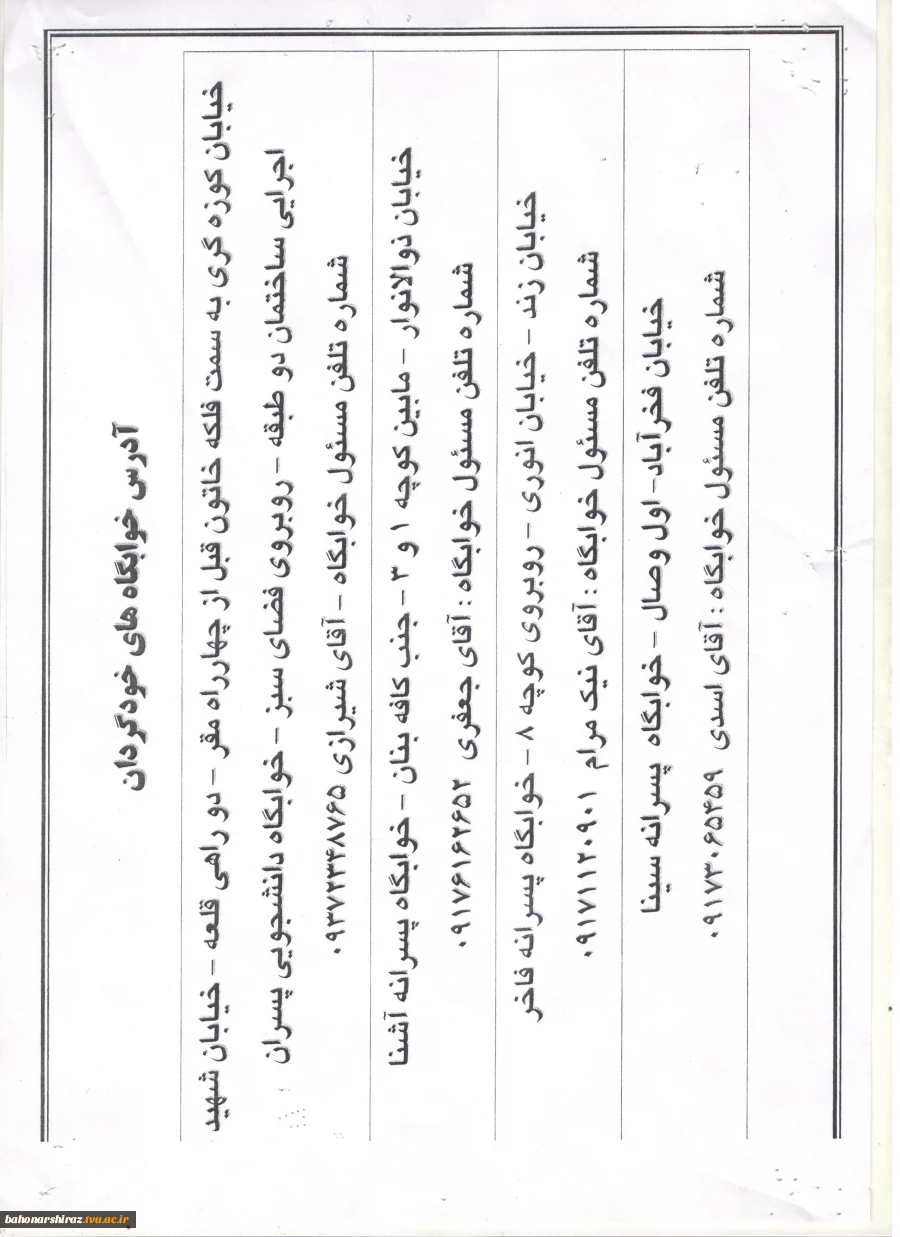 آدرس خوابگاه های خودگردان
خیابان کوزه گری به سمت فلکه خاتون قبل از چهارراه مقر – دو راهی قلعه – خیابان شهید
اجرایی ساختمان دو طبقه – روبروی فضای سبز – خوابگاه دانشجویی پسران
شماره تلفن مسئول خوابگاه – آقای شیرازی ۰۹۳۷۲۳۴۸۷۶۵
خیابان ذوالانوار – مابین کوچه ۱ و ۳ – جنب کافه بنان – خوابگاه پسرانه آشنا
شماره تلفن مسئول خوابگاه : آقای جعفری ۰۹۱۷۶۱۶۲۶۵۲
خیابان زند – خیابان انوری – روبروی کوچه ۸ – خوابگاه پسرانه فاخر
شماره تلفن مسئول خوابگاه : آقای نیک مرام ۰۹۱۷۱۱۲۰۹۰۱
خیابان فخرآباد– اول وصال – خوابگاه پسرانه سینا
شماره تلفن مسئول خوابگاه : آقای اسدی ۰۹۱۷۳۰۶۵۴۵۹
bahonarshiraz.tvu.ac.ir